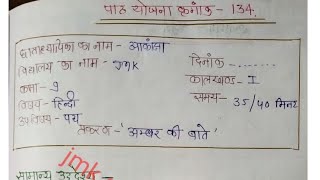 पाठ योजना क्रमांक - 134.
छात्राध्यापिका का नाम - आकांक्षा
विद्यालय का नाम - JMK
दिनाँक - ........
कक्षा - 9
कालखण्ड - I
विषय - हिन्दी
समय - 35/40 मिनट
उपविषय - पद्य
प्रकरण - 'अम्बर की बाते'
jmk
सामान्य उद्देश्य -